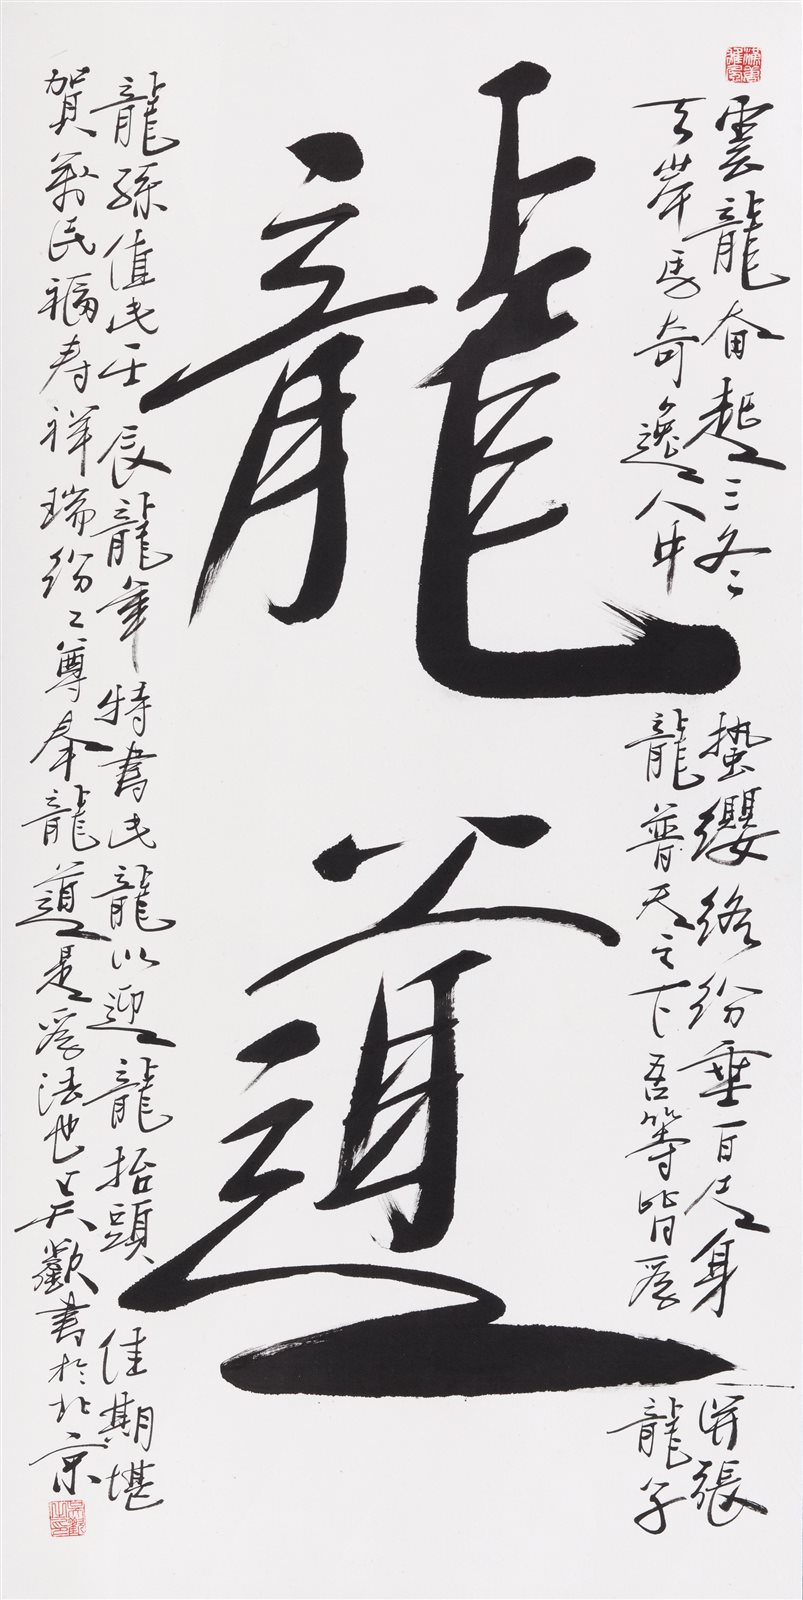 龍道
雲龍奋起三冬蟄纓絡紛垂百尺身開張
天岸馬奇逸人中龍普天之下吾等皆爲龍子
龍孫值此壬辰龍年特書此龍以迎龍抬頭佳期堪
賀萬民福寿祥瑞紛々尊奉龍道是爲法也吳歡書於北京